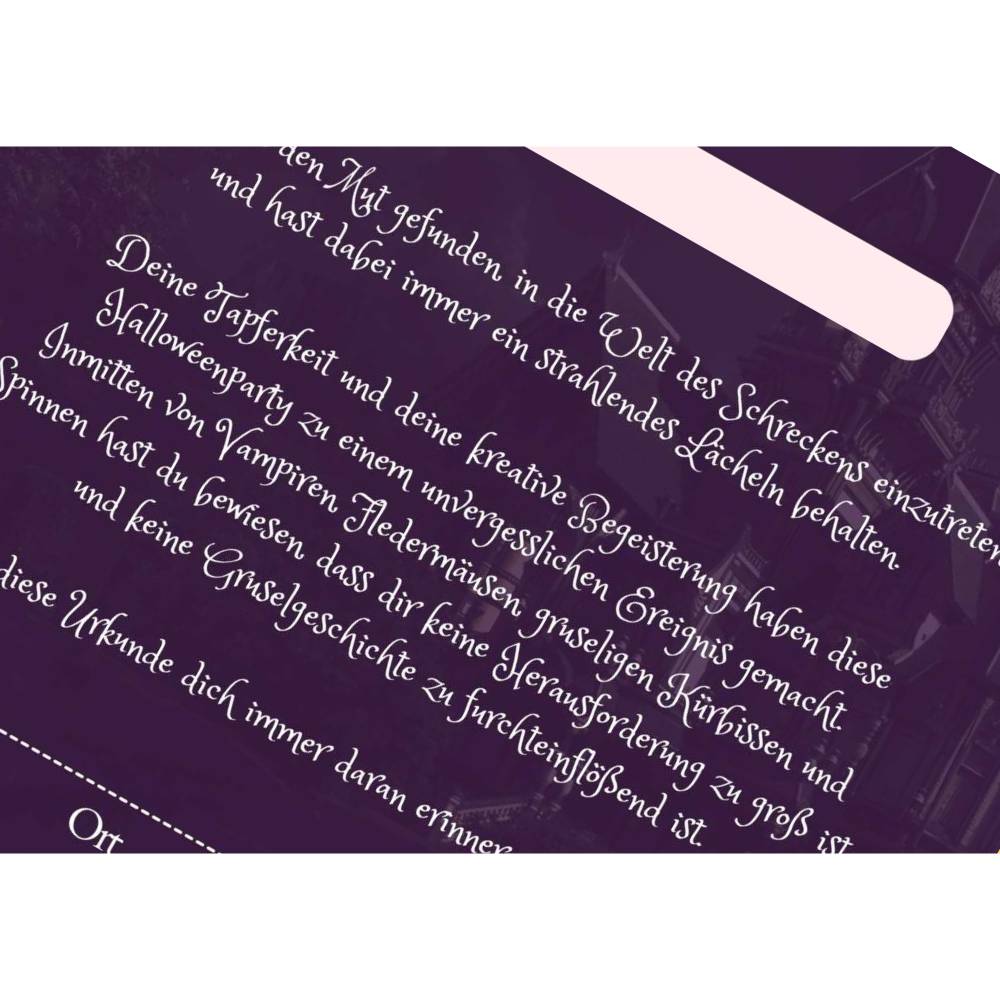 den Mut gefunden, in die Welt des Schreckens einzutreten
und hast dabei immer ein strahlendes Lächeln behalten.
Deine Tapferkeit und deine kreative Begeisterung haben diese
Halloweenparty zu einem unvergesslichen Ereignis gemacht.
Inmitten von Vampiren, Fledermäusen, gruseligen Kürbissen und
Spinnen hast du bewiesen, dass dir keine Herausforderung zu groß ist
und keine Gruselgeschichte zu furchteinflößend ist.
diese Urkunde dich immer daran erinner
Ort